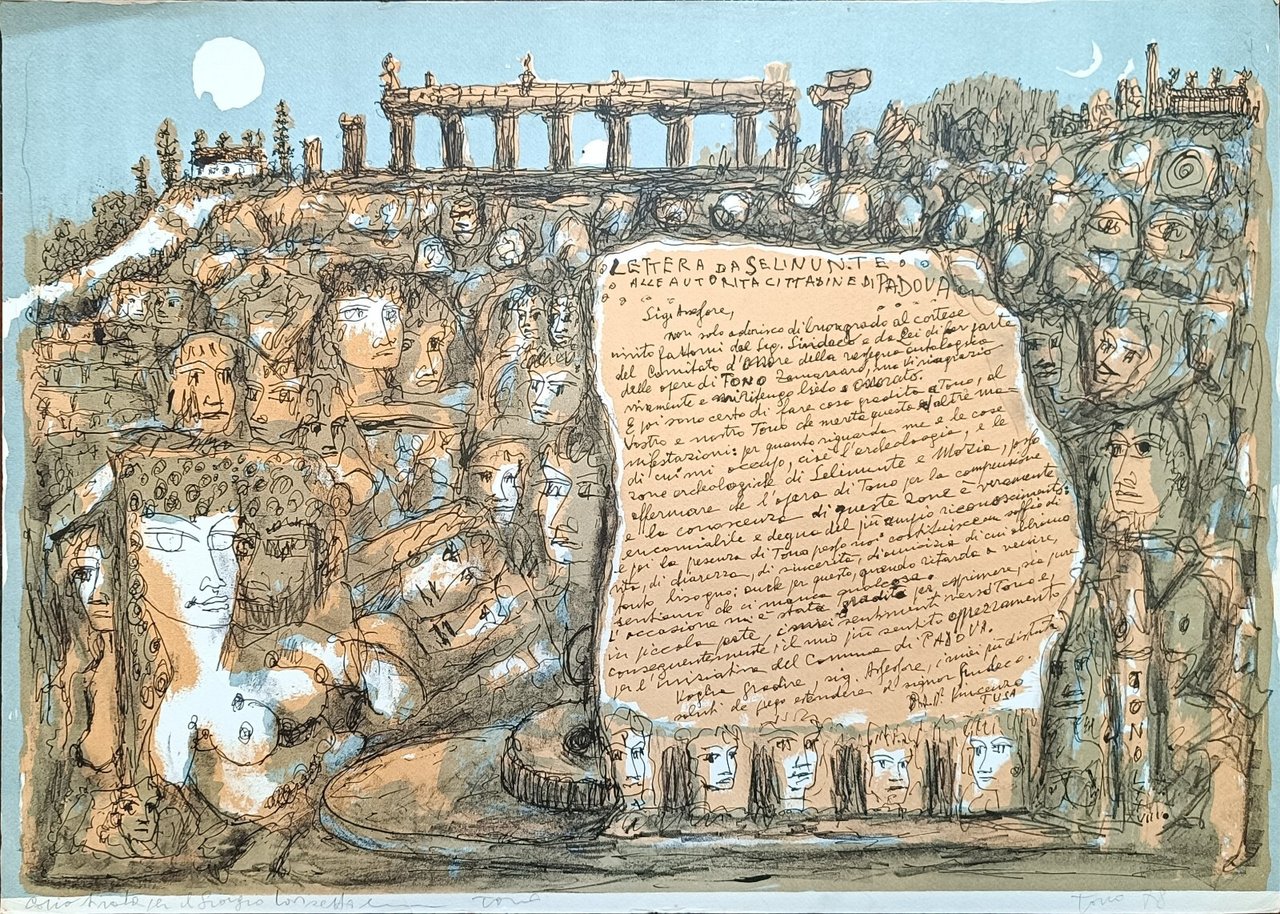 LETTERA DA SELINUNTE
ALLE AUTORITÀ CITTADINE DI PADOVA
Sig. Assessore,
non solo aderisco di buon grado al cortese
invito fattomi dal sig. Sindaco e da Lei di far parte
del Comitato d'Onore della rassegna antologica
delle opere di TONO Zancanaro, ma vi ringrazio
vivamente e mi ritengo lieto e onorato.
E poi sono certo di fare cosa gradita a Tono, al
vostro e nostro Tono che merita queste e altre ma
nifestazioni: per quanto riguarda me e le cose
di cui mi occupo, cioè l'archeologia, e le
zone archeologiche di Selinunte e Mozia, posso
affermare che l'opera di Tono per la comprensione
e la conoscenza di queste zone è veramente
encomiabile e degna del più ampio riconoscimento:
poi la presenza di Tono costituisce un soffio di
vita, di chiarezza, di sincerità, d'amicizia di cui abbiamo
tanto bisogno: anche per questo, quando ritarda a venire,
sentiamo che ci manca qualcosa.
L'occasione mi è stata gradita per esprimere, sia pure
in piccola parte, i miei sentimenti verso Tono e,
conseguentemente, il mio più sentito apprezzamento
per l'iniziativa del Comune di PADOVA.
Voglia gradire sig. Assessore, i miei più distinti
saluti che prego estendere al signor Sindaco.
Vincenzo
TUSA
TONO
Tono
Tono 78